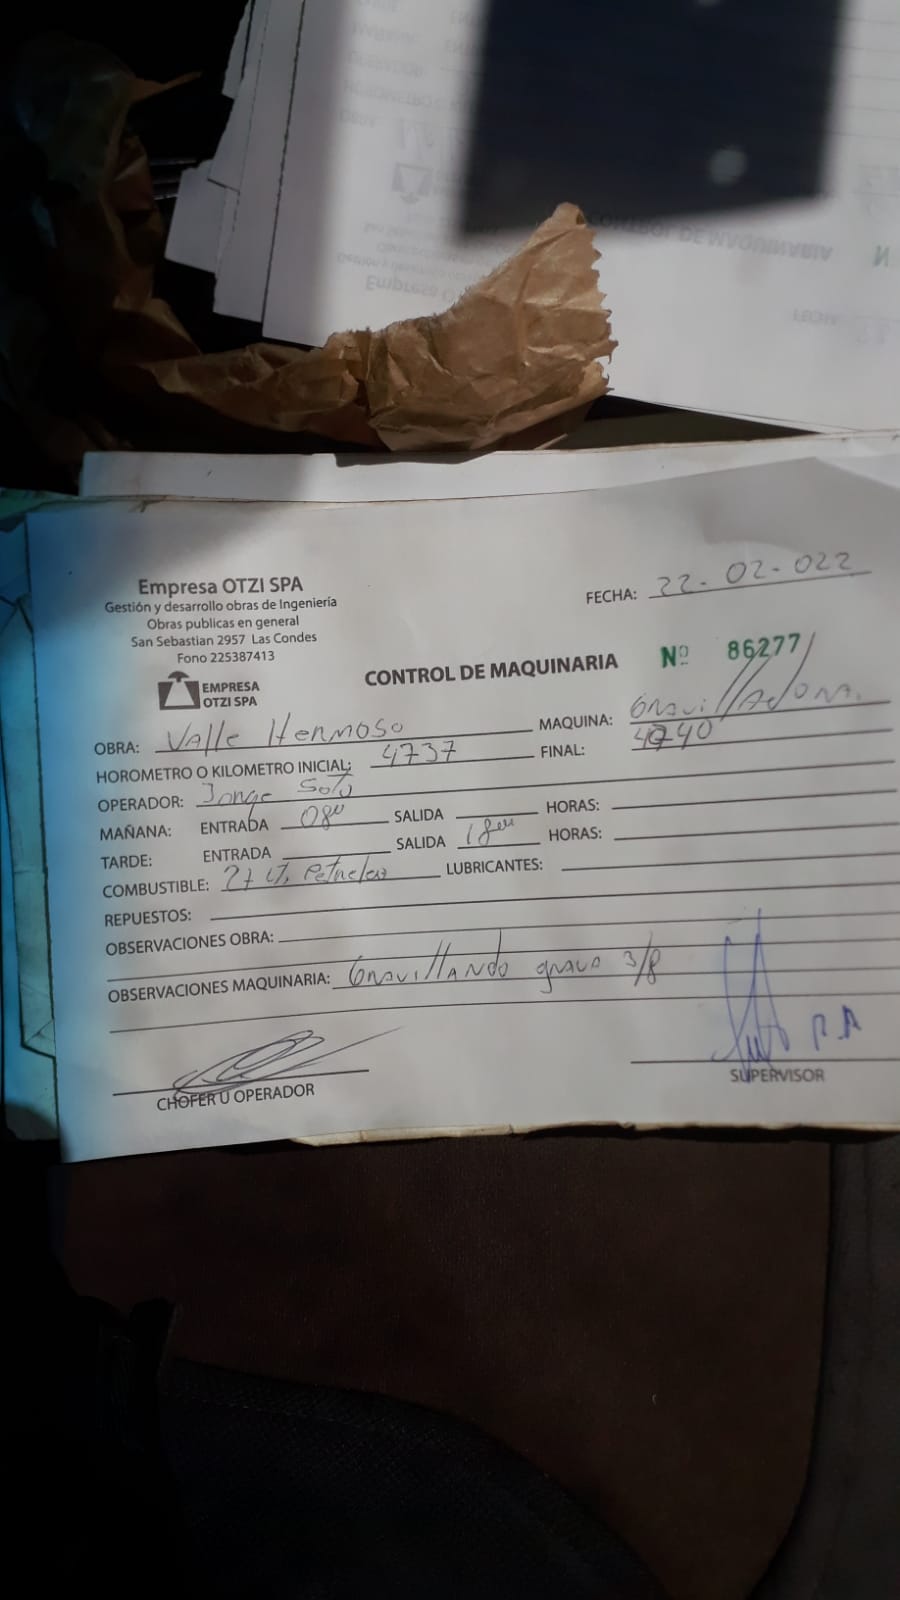 Empresa OTZI SPA
Gestión y desarrollo obras de Ingeniería
Obras publicas en general
San Sebastian 2957 Las Condes
Fono 225387413
EMPRESA
OTZI SPA
FECHA: 22-02-022
CONTROL DE MAQUINARIA Nº 86277
OBRA: Valle Hermoso MAQUINA: Gravilladora.
HOROMETRO O KILOMETRO INICIAL: 4737 FINAL: 4740
OPERADOR: Jorge Soto
MAÑANA: ENTRADA 08 SALIDA HORAS:
TARDE: ENTRADA SALIDA 18 HORAS:
COMBUSTIBLE: LUBRICANTES:
REPUESTOS:
OBSERVACIONES OBRA:
OBSERVACIONES MAQUINARIA: Gravillando grava 3/8
P.A
CHOFER U OPERADOR SUPERVISOR